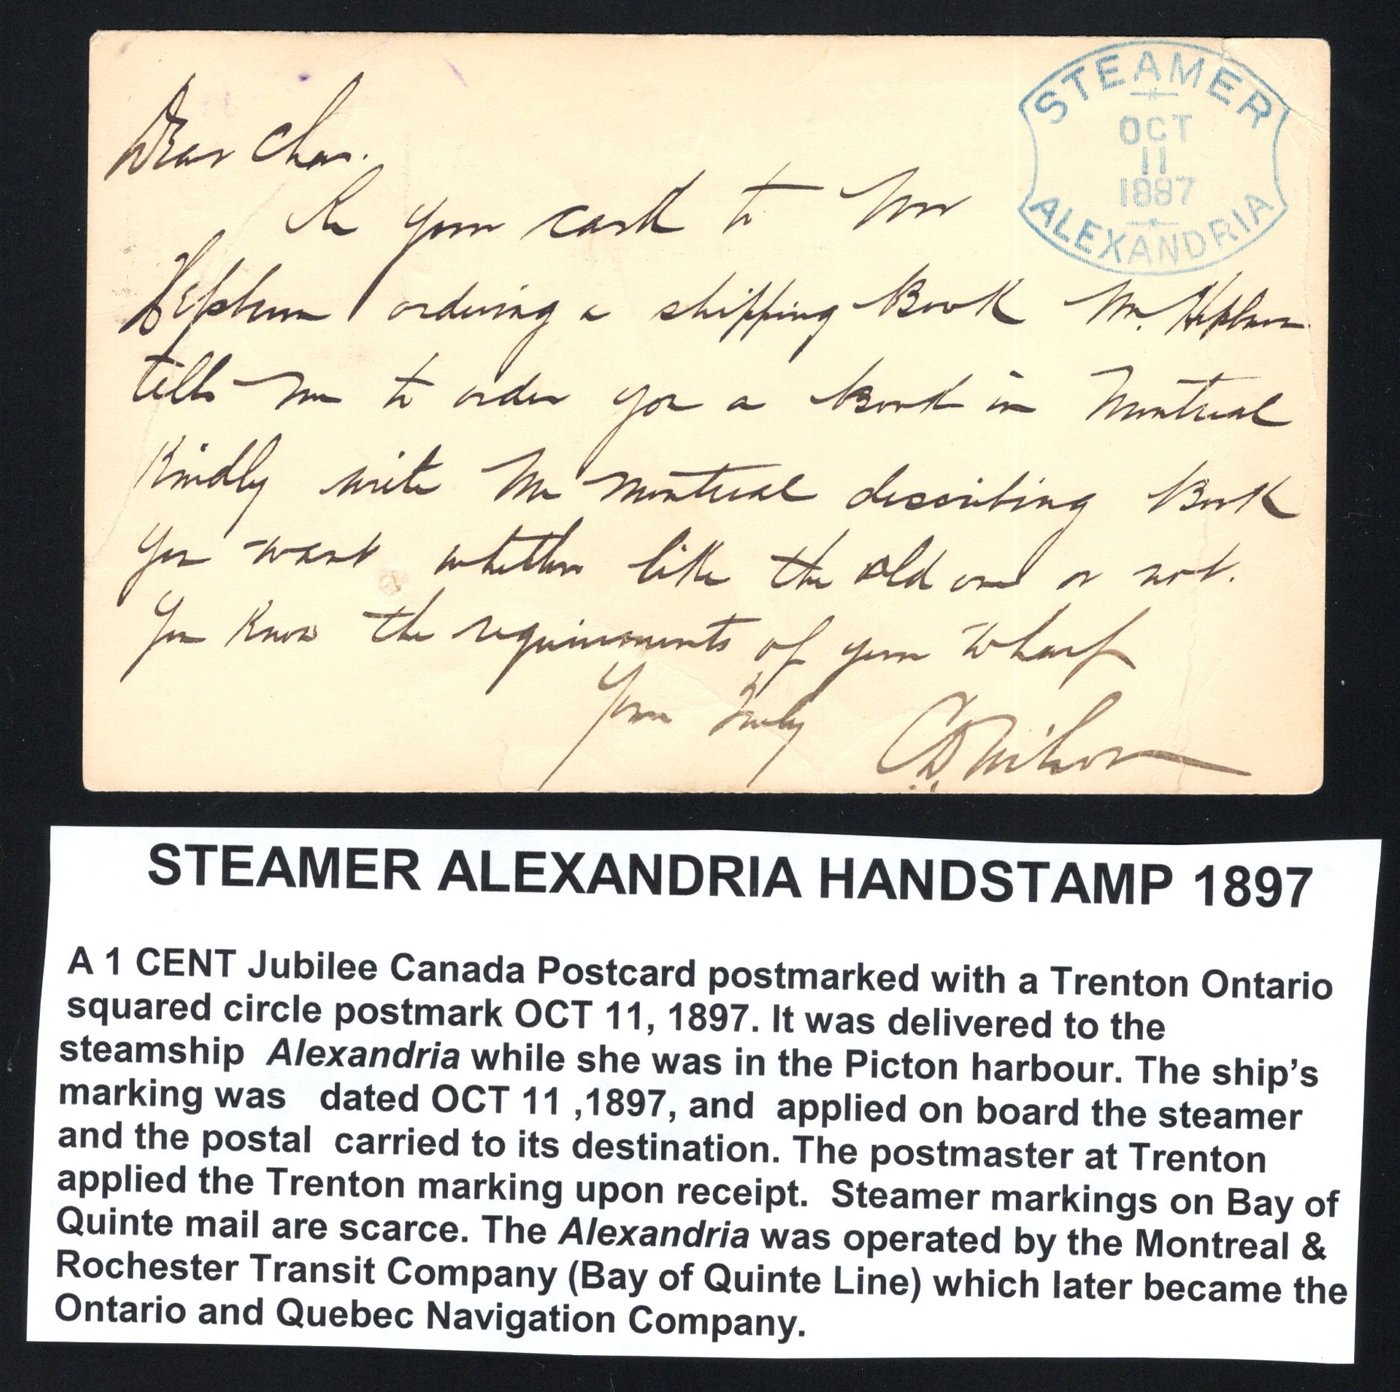 STEAMER
OCT
11
1897
ALEXANDRIA
Dear Chas.
Re your card to Mr
Hepburn ordering a shipping Book Mr. Hepburn
tells me to order you a Book in Montreal
Kindly write me Montreal describing Book
you want whether like the old one or not.
You know the requirements of your wharf
Yours Truly
STEAMER ALEXANDRIA HANDSTAMP 1897
A 1 CENT Jubilee Canada Postcard postmarked with a Trenton Ontario
squared circle postmark OCT 11, 1897. It was delivered to the
steamship Alexandria while she was in the Picton harbour. The ship's
marking was dated OCT 11 ,1897, and applied on board the steamer
and the postal carried to its destination. The postmaster at Trenton
applied the Trenton marking upon receipt. Steamer markings on Bay of
Quinte mail are scarce. The Alexandria was operated by the Montreal &
Rochester Transit Company (Bay of Quinte Line) which later became the
Ontario and Quebec Navigation Company.